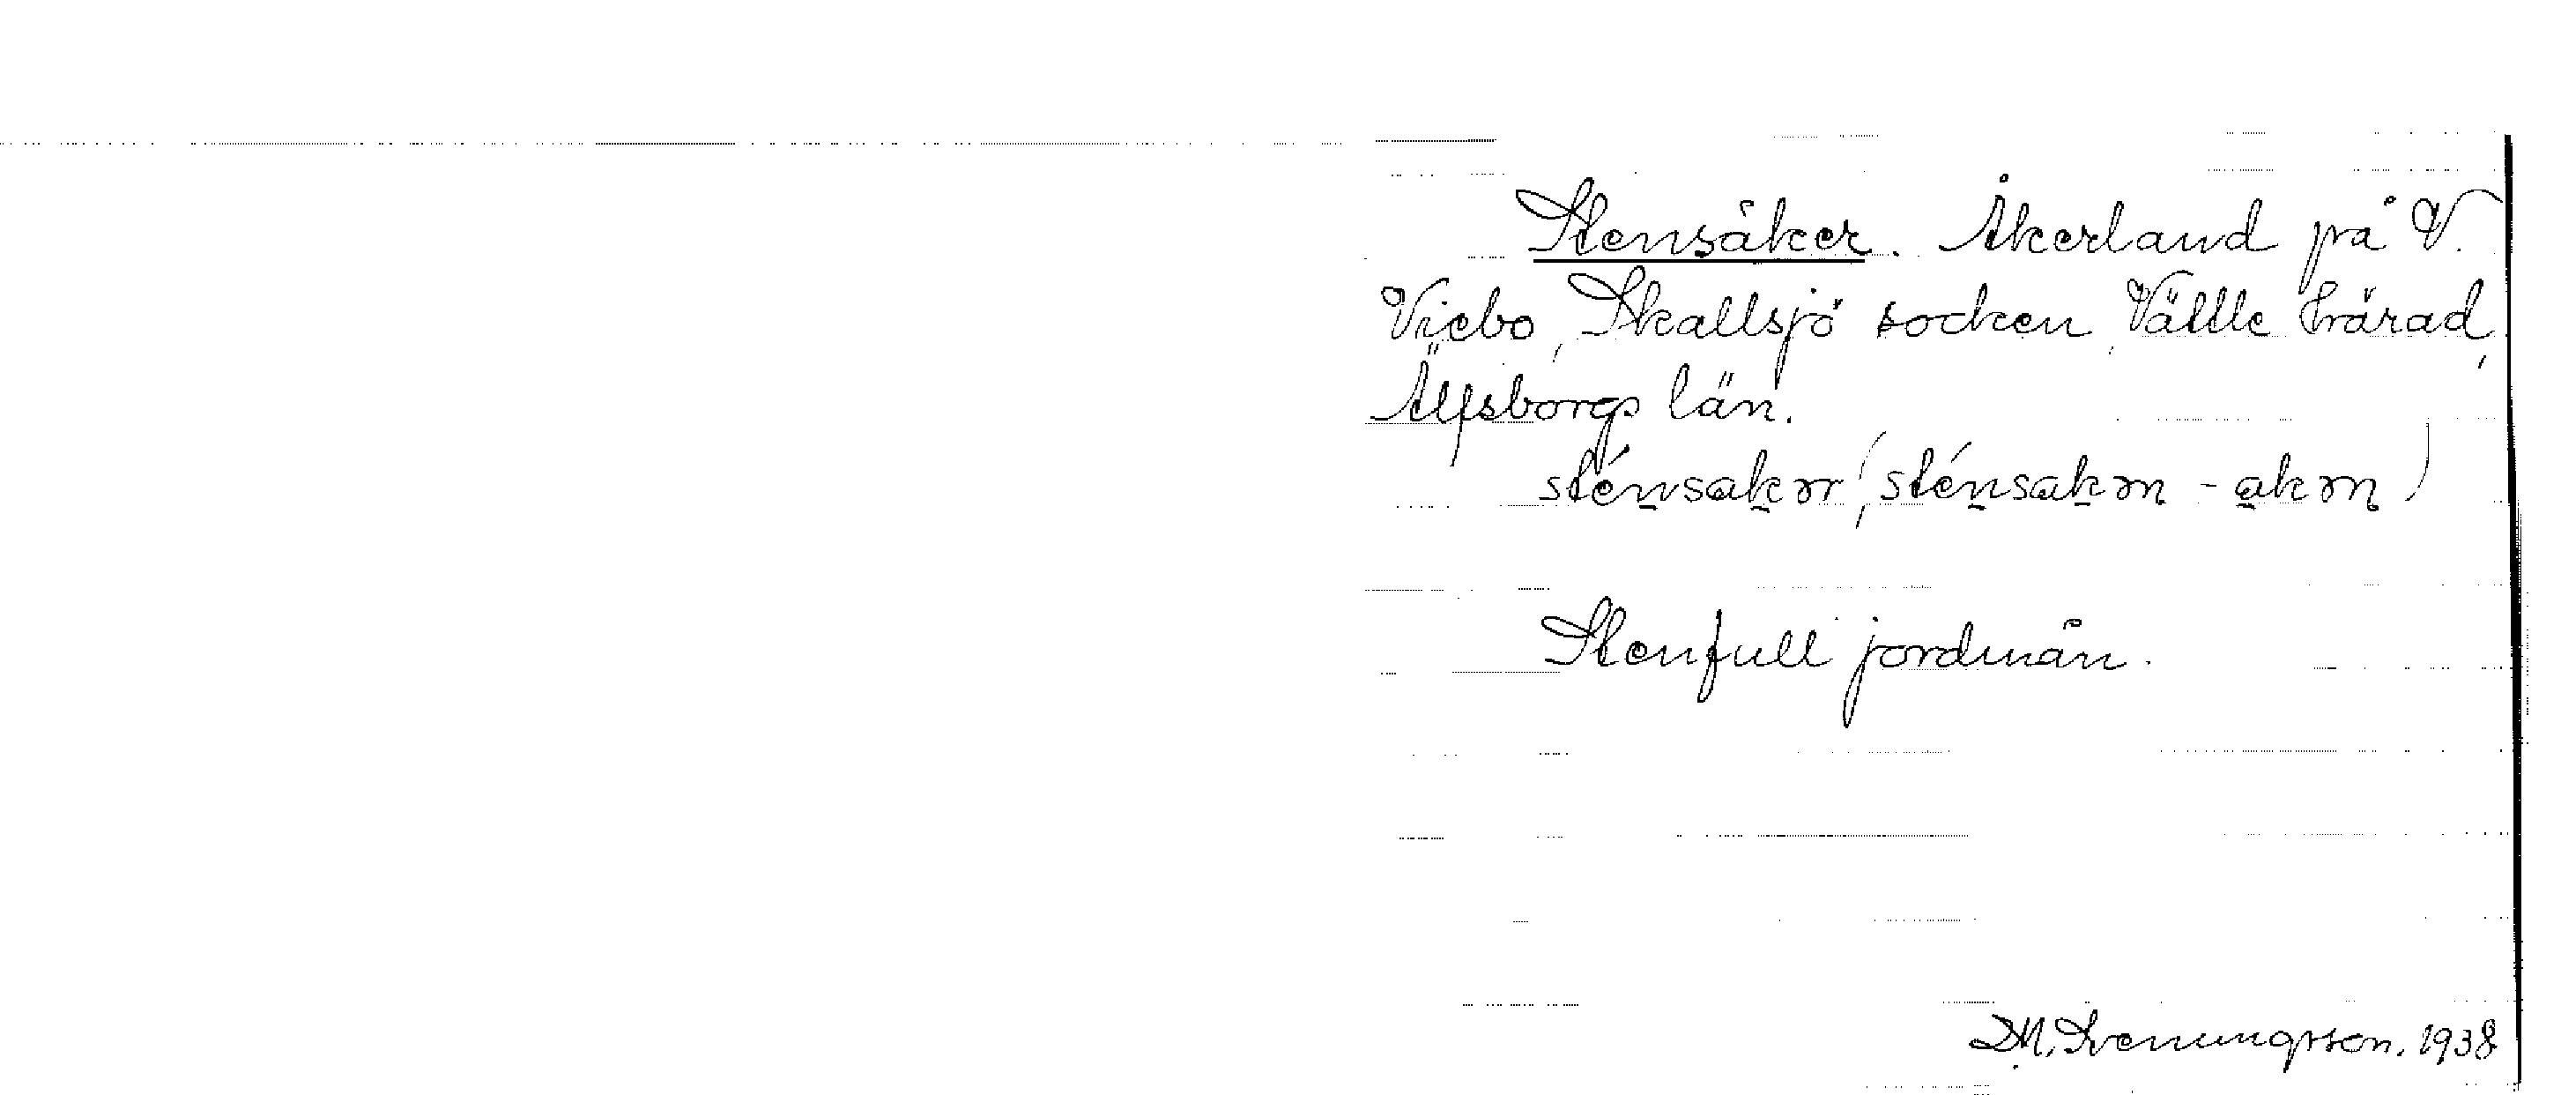 Stensåker. Åkerland på V.
Viebo, Skallsjö socken, Vättle härad,
Älfsborgs län.
sténsakər (sténsakən - akən)
Stenfull jordmån.
D.M. Svenungsson. 1938